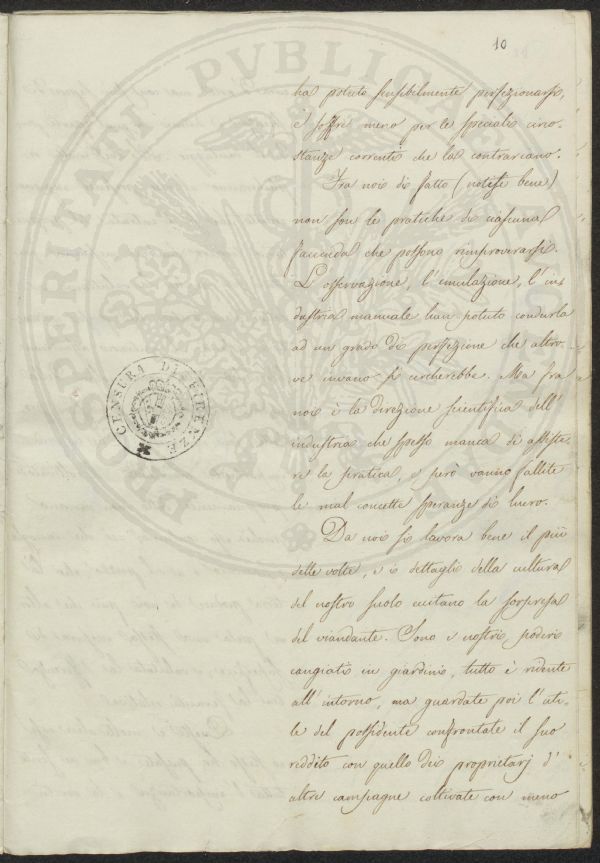 10
ha potuto sensibilmente perfezionarsi,
e soffre meno per le speciali circo-
stanze correnti che la contrariano.
Fra noi di fatto (notisi bene)
non son le pratiche di ciascuna
faccenda che possono rimproverarsi.
L'osservazione, l'emulazione, l'in
dustria manuale han potuto condurla
ad un grado di perfezione che altro-
ve invano si cercherebbe. Ma fra
noi è la direzione scientifica dell'
industria che spesso manca di assiste-
re la pratica, e però vanno fallite
le mal concette speranze di lucro.
Da noi si lavora bene il più
delle volte, e i dettagli della cultura
del nostro suolo eccitano la sorpresa
del viandante. Sono i nostri poderi
cangiati in giardini, tutto è ridente
all'intorno, ma guardate poi l'uti-
le del possidente confrontate il suo
reddito con quello dei proprietarj d'
altre campagne coltivate con meno
CENSURA DI FIRENZE
PROSPERITATI PVBLICAE